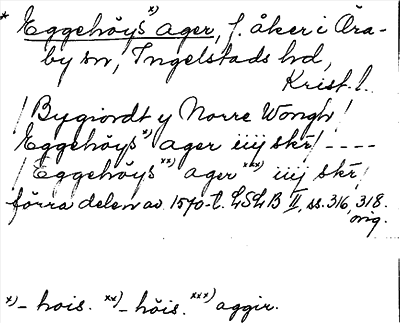 * Eggehöys x) ager, f. åker i Öra-
by sn, Ingelstads hd,
Krist. l.
/Bygiordt y Norre Wongh/
Eggehöys x) ager iiij skr/ ----
/Eggehöys xx) ager xxx) iiij skr/
förra delen av 1570-t. LSLB II, ss. 316, 318.
orig.
x)- hois. xx)- höis. xxx) aggir.